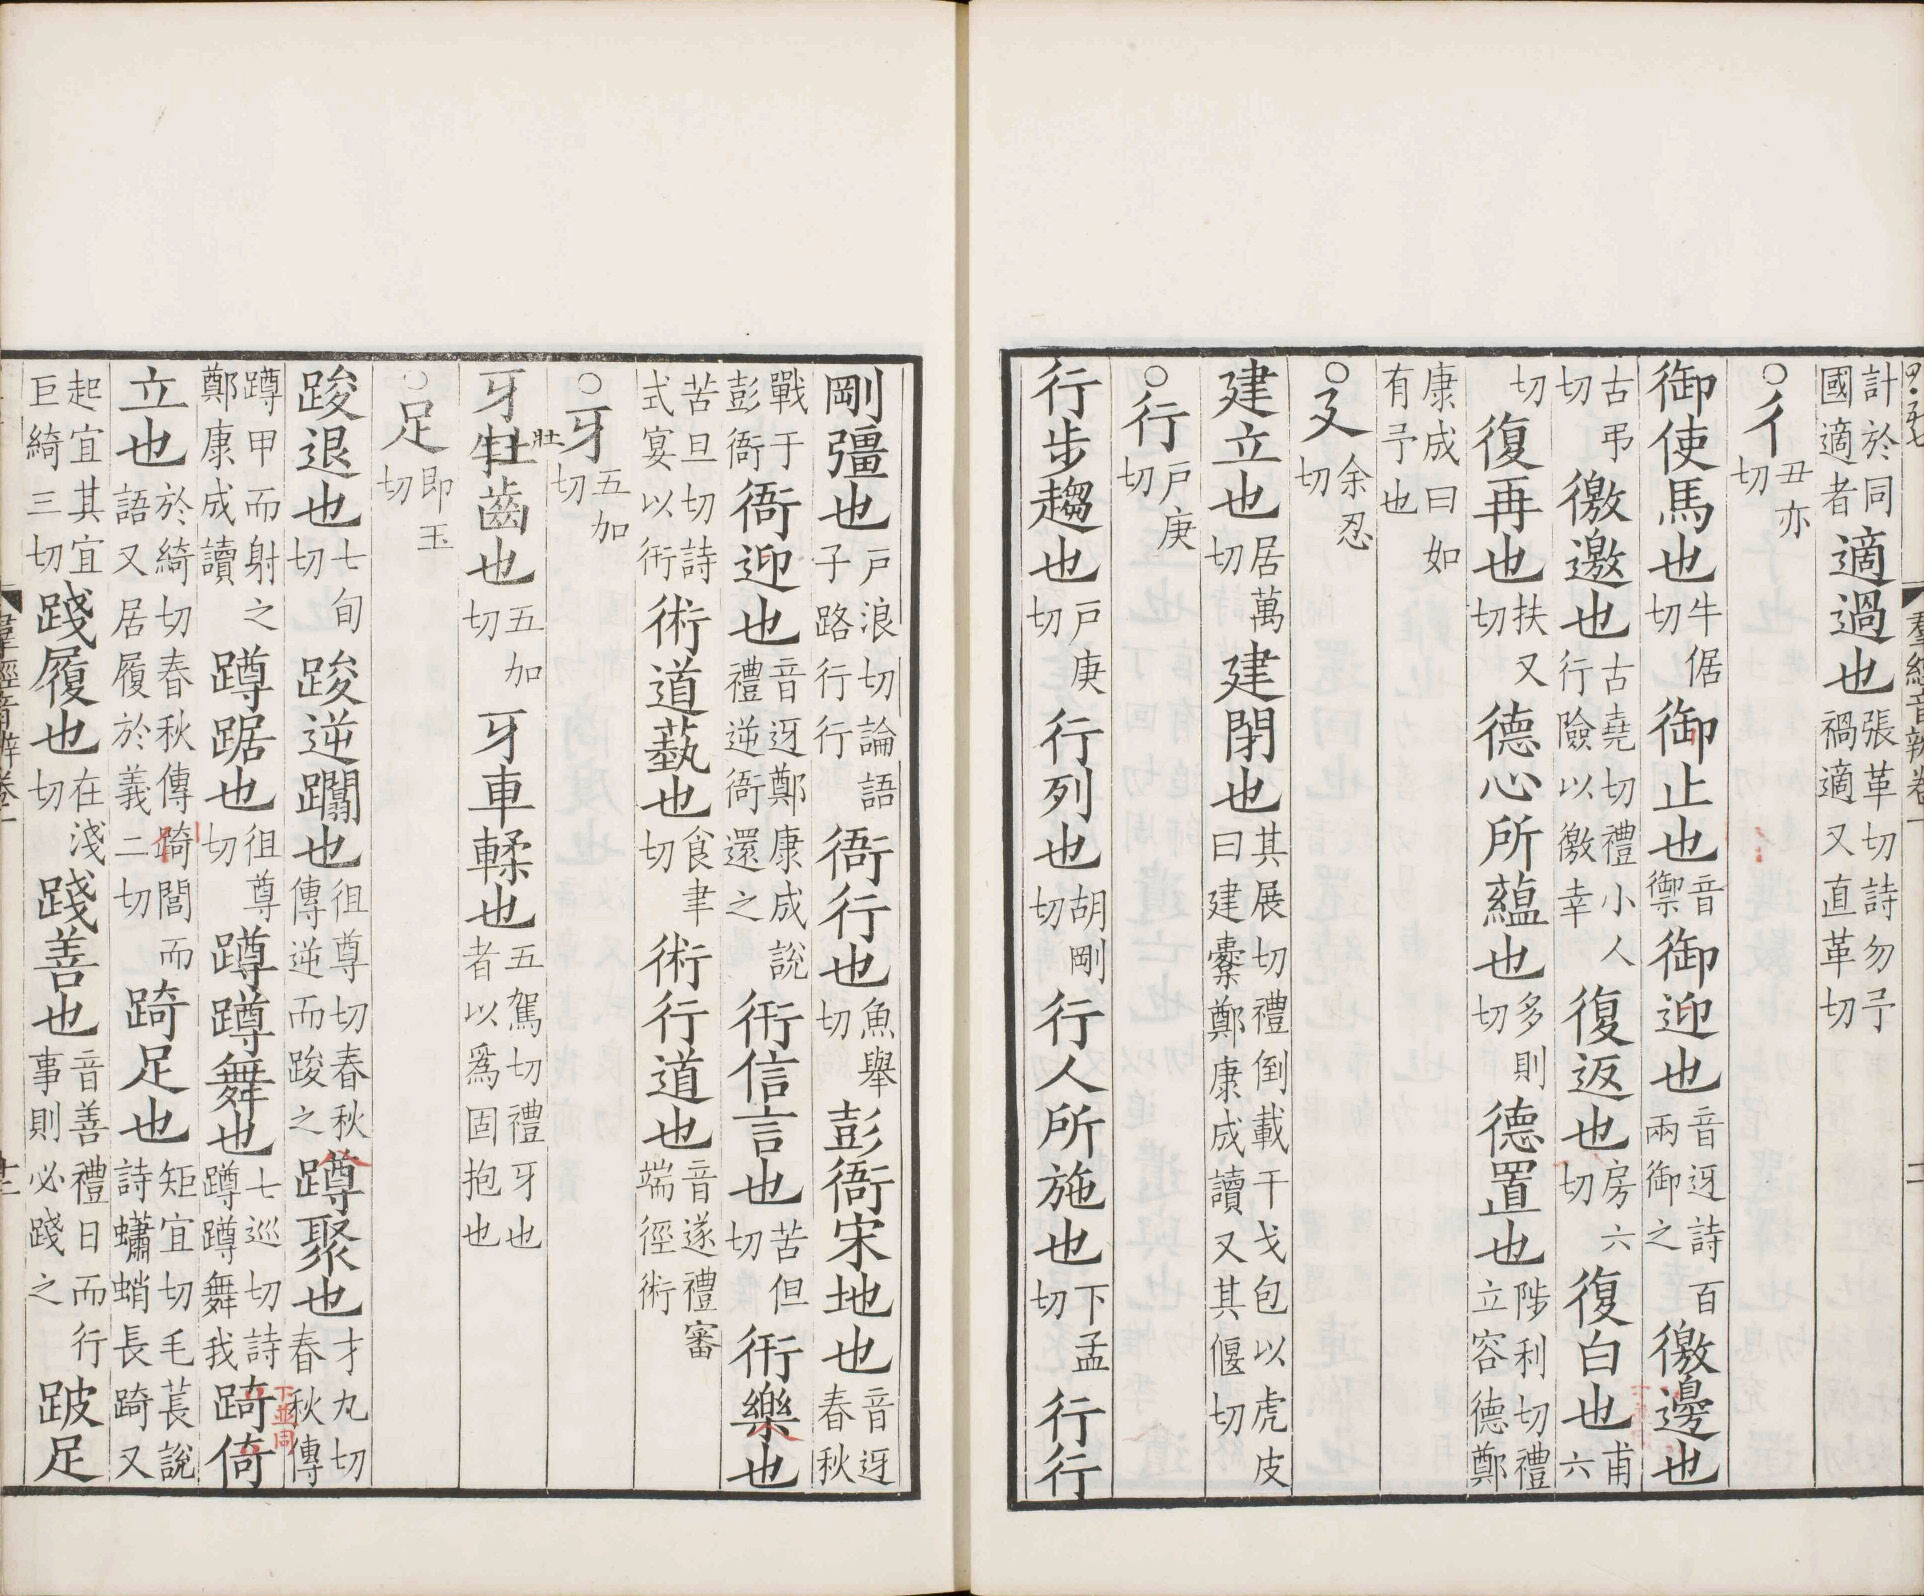 計於同國適者適過也張革切詩勿予禍適又直革切
○彳丑亦切
御使馬也牛倨切御止也音禦御迎也音迓詩百兩御之徼邊也
古弔切徼邀也古堯切禮小人行險以徼幸復返也房六切復白也甫六
切復再也扶又切德心所蘊也多則切德置也陟利切禮立容德鄭
康成曰如有予也
○廴余忍切
建立也居萬切建閉也其展切禮倒載干戈包以虎皮曰建櫜鄭康成讀又其偃切
○行戶庚切
行步趨也戶庚切行列也胡剛切行人所施也下孟切行行
剛彊也戶浪切論語子路行行衙行也魚舉切彭衙宋地也音迓春秋
戰于彭衙衙迎也音迓鄭康成說禮逆衙還之衎信言也苦但切衎樂也
苦旦切詩式宴以衎術道藝也食聿切術行道也音遂禮審端徑術
○牙五加切
牙牡齒也五加切牙車輮也五駕切禮牙也者以爲固抱也
壯
○足即玉切
踆退也七旬切踆逆躢也徂尊切春秋傳逆而踆之蹲聚也才丸切春秋傳
蹲甲而射之鄭康成讀蹲踞也徂尊切蹲蹲舞也七巡切詩蹲蹲舞我踦倚
下並同
立也於綺切春秋傳踦閭而語又居履於義二切踦足也矩宜切毛萇說詩蠨蛸長踦又
起宜其宜巨綺三切踐履也在淺切踐善也音善禮日而行事則必踐之跛足
羣經音辨卷二
十一
羣經音辨卷二
十二